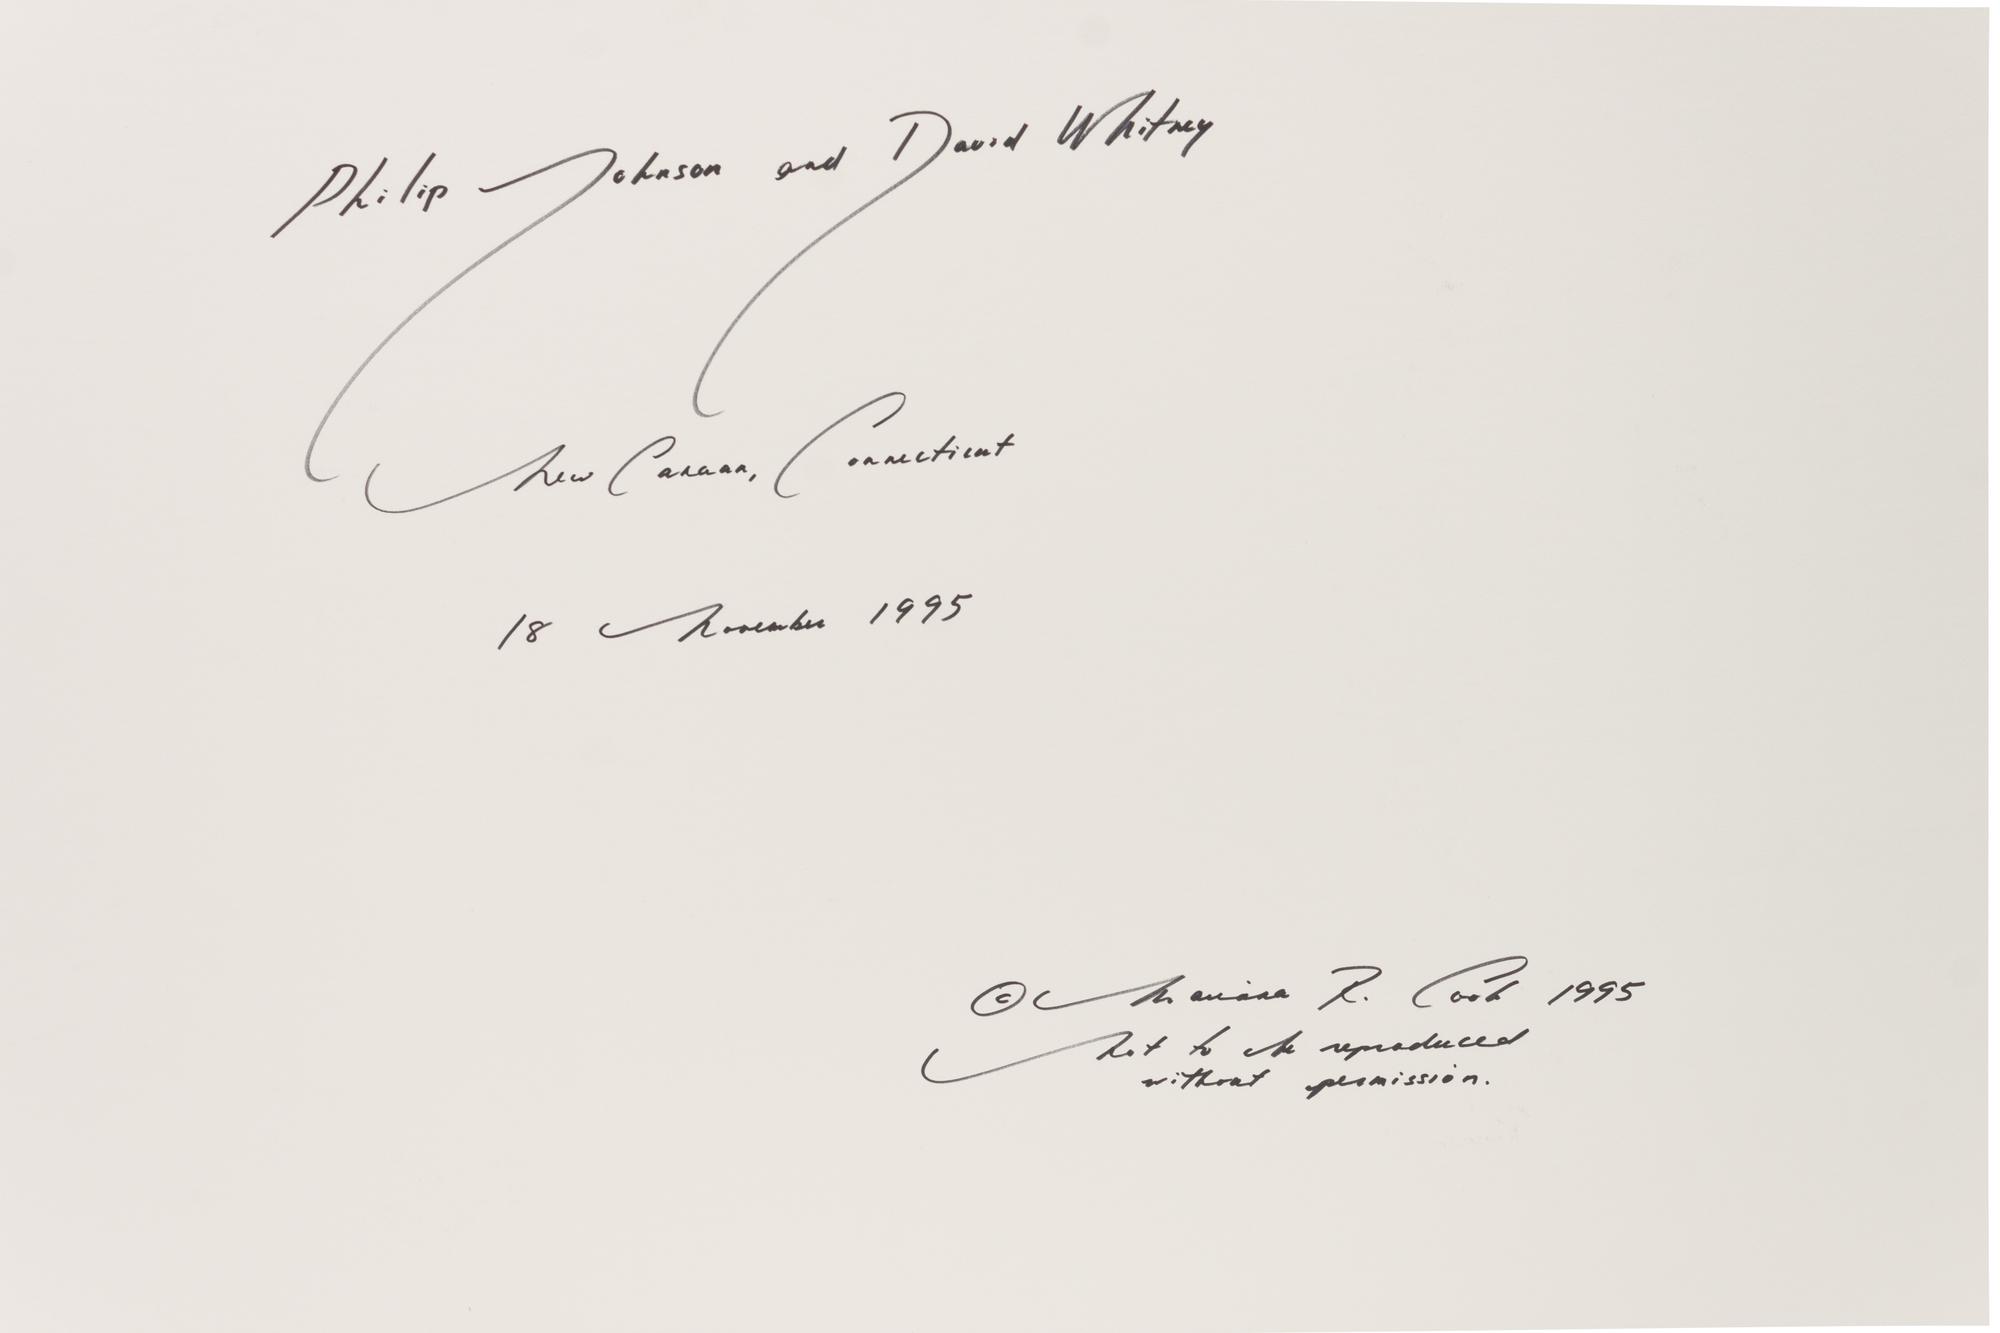 Philip Johnson and David Whitney
New Canaan, Connecticut
18 November 1995
© Mariana R. Cook 1995
Not to be reproduced
without permission.